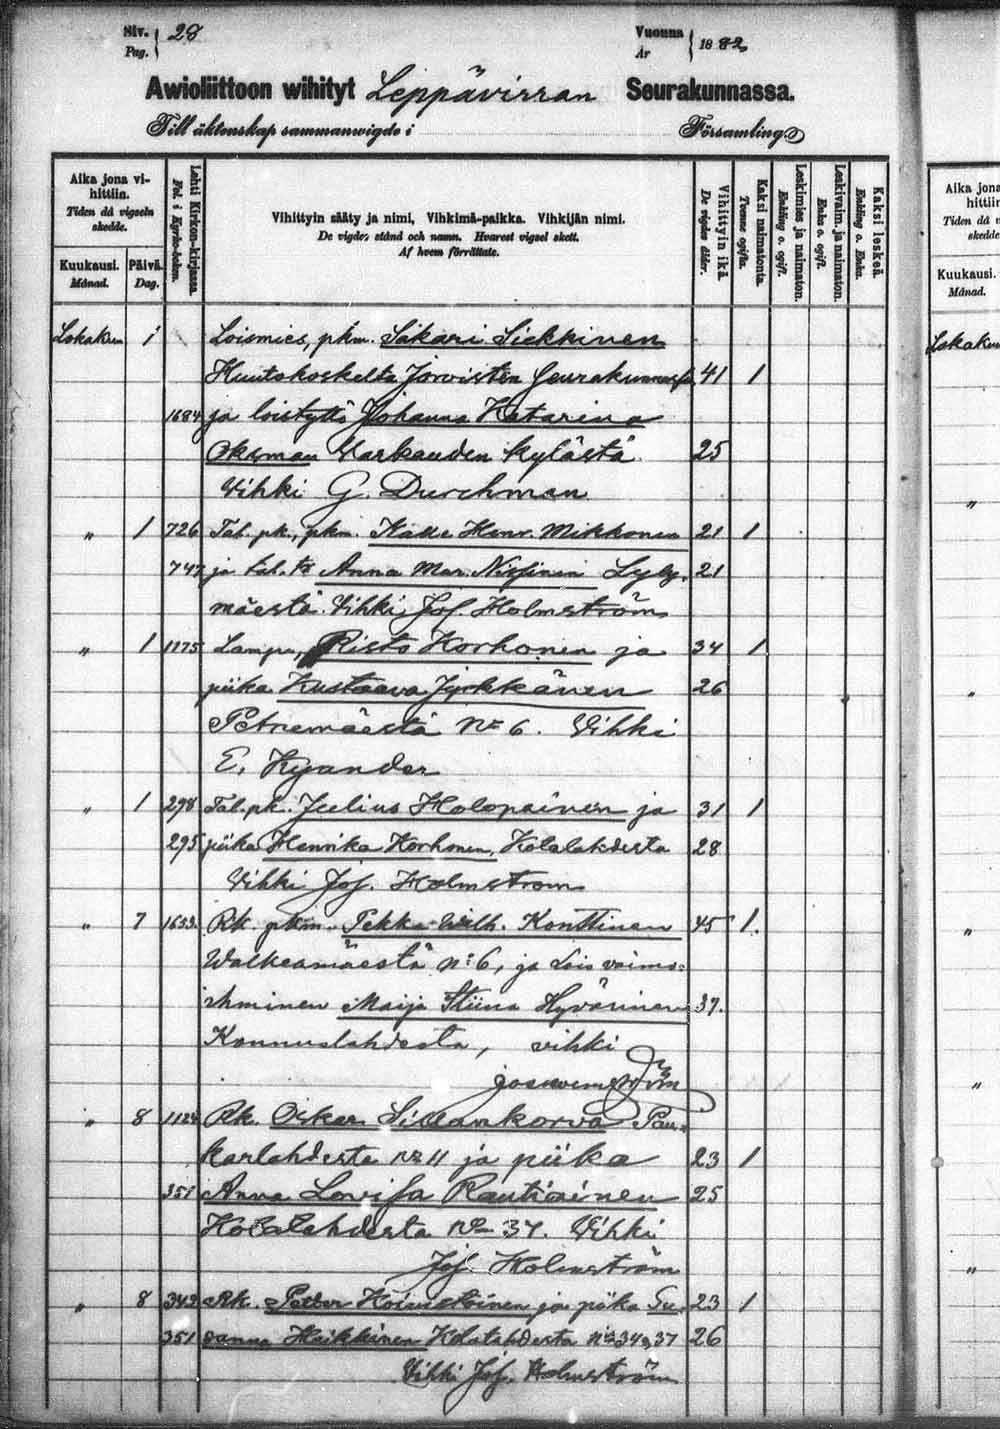 Siv. Pag. 28 Vuonna År 1882
Awioliittoon wihityt Leppävirran Seurakunnassa.
Till äktenskap sammanwigde i Församling.
Aika jona vihittiin. Tiden då vigseln skedde.
Kuukausi. Månad.
Päivä. Dag.
Lehti Kirkon-kirjassa. Fol. i Kyrko-boken.
Vihittyin sääty ja nimi, Vihkimä-paikka. Vihkijän nimi.
De vigdes stånd och namn. Hvarest vigsel skett.
Af hvem förrättats.
Vihittyin ikä. De vigdes ålder.
Kaksi naimatonta. Tvenne ogifta.
Leskimies ja naimaton. Enkling o. ogift.
Leskivaim. ja naimaton. Enka o. ogift.
Kaksi leskeä. Enkling o. Enka.
Lokakuu 1 Loismies, pkm. Sakari Siekkinen
Huutokoskelta Joroisten Seurakunnassa 41 1
1684 ja loistyttö Johanna Katarina
Oksman Varkauden kylästä 25
Vihki G. Durchman
" 1 726 Tal. pk., pkm. Kalle Henr. Mikkonen 21 1
747 ja tal. tr Anna Mar. Nissinen Lyly- 21
mäestä. Vihki Jos. Holmström
" 1 1175 Lampu, Risto Korhonen ja 34 1
piika Kustaava Jyrkkänen 26
Petremäestä No 6. Vihki
E. Kyander
" 1 298 Tal. pk. Juelius Holopainen ja 31 1
295 piika Henrika Korhonen, Kotalahdesta 28
Vihki Jos. Holmström
" 7 1633. Rk. pkm. Pekka Wilh. Konttinen 45 1.
Walkeamäestä N:6, ja Lois vaimo=
ihminen Maija Stiina Hyvärinen 37.
Konnuslahdesta, vihki
" 8 1124 Rk. Oskar Sillankorva Pau-
karlahdesta No 11 ja piika 23 1
351 Anna Lovisa Rautiainen 25
Kotalahdesta No 37. Vihki
Jos. Holmström
" 8 342 Rk. Petter Koivistoinen ja piika Su- 23 1
351 sanna Heikkinen Kotalahdesta No 34 a 37 26
Vihki Jos. Holmström
Aika jona
hittiin
Tiden då v
skedde
Kuukausi.
Månad.
Lokakuu
"
"
"
"
"